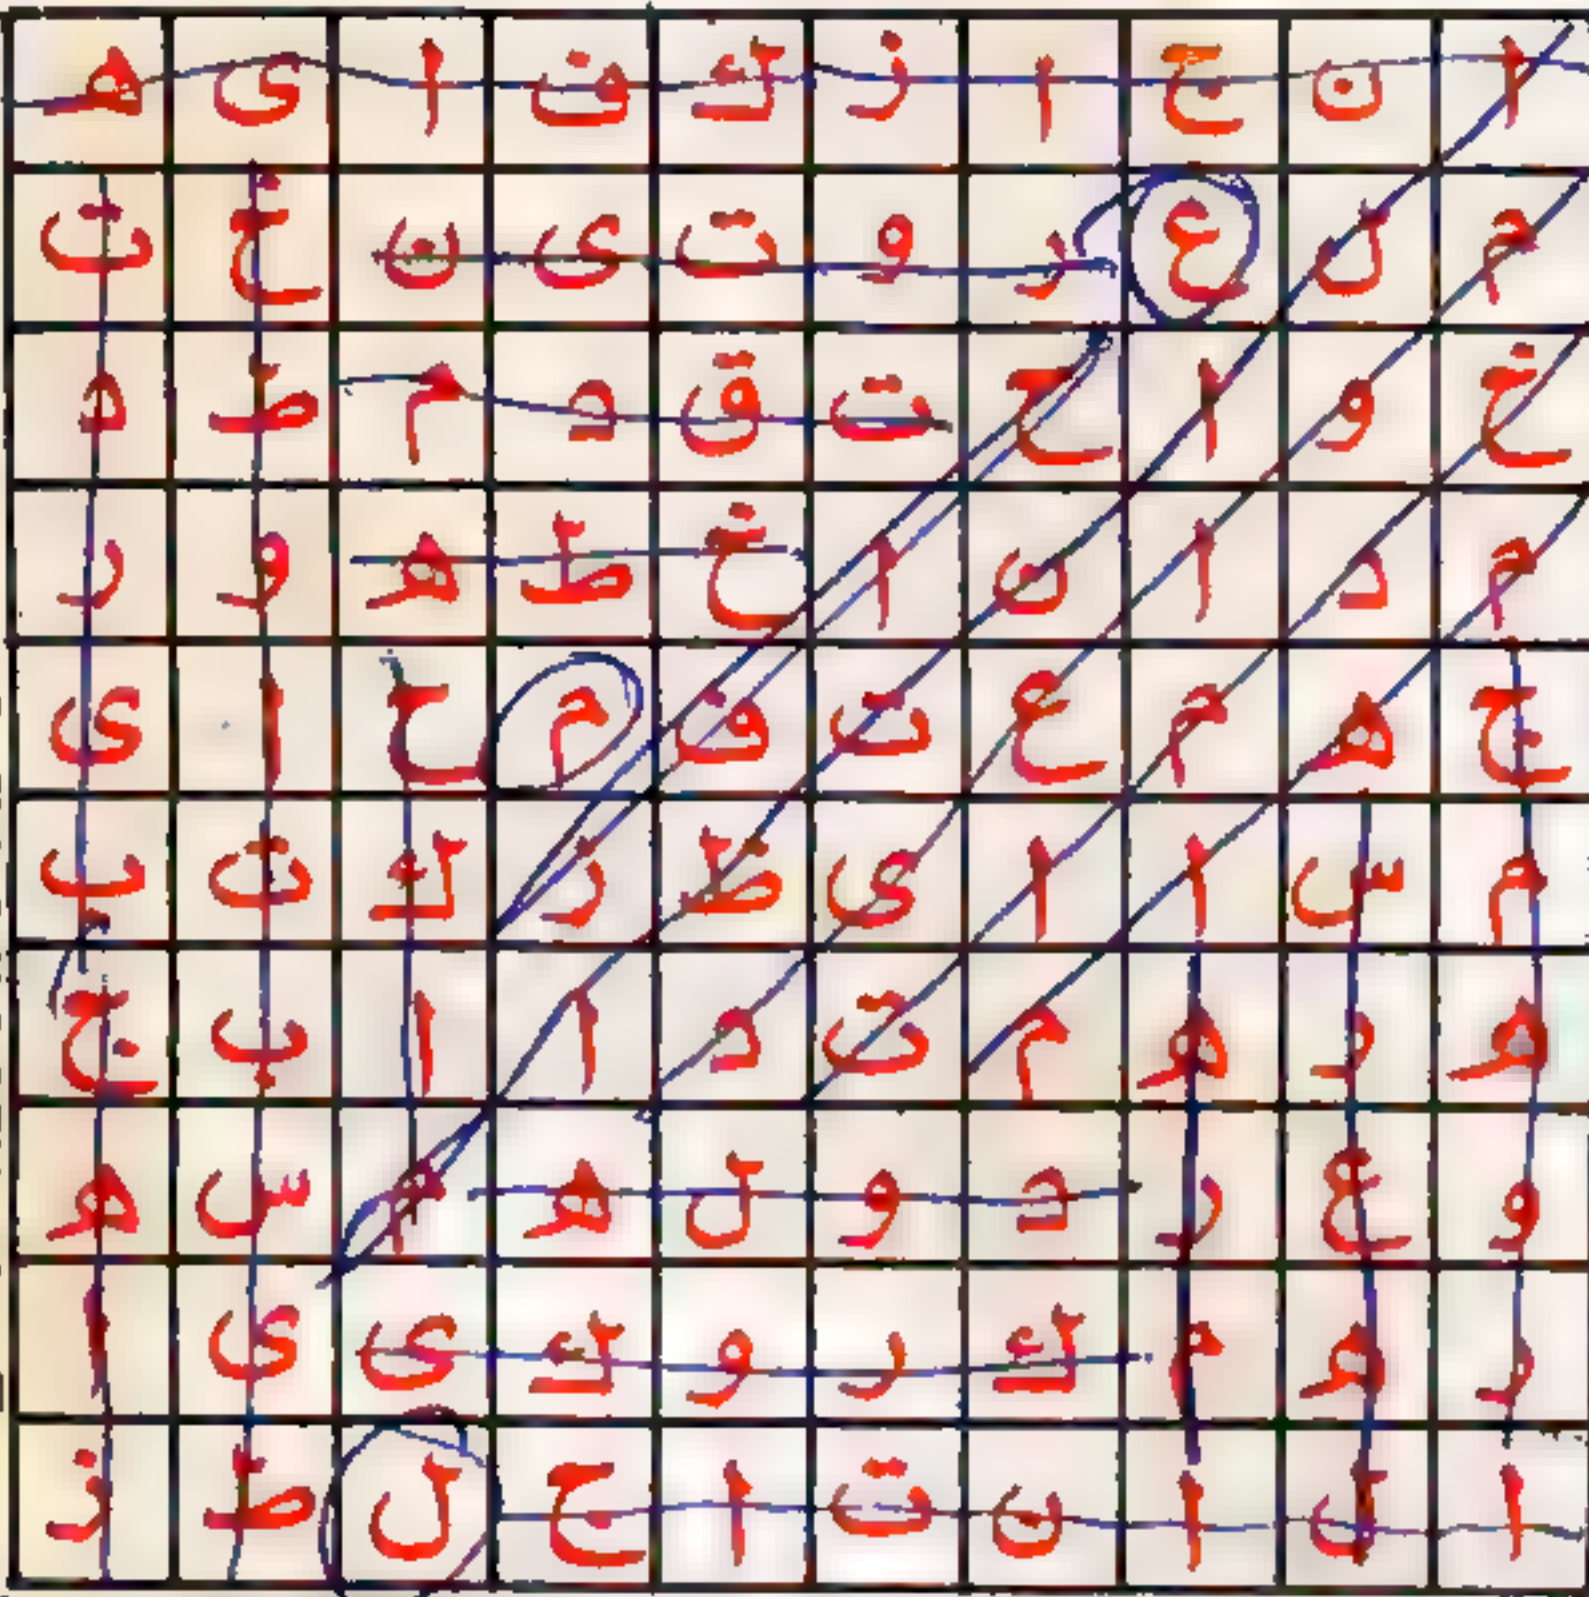 ا ن ج ا ز ك ف ا ى ه
م ل ع ر و ت ى ن خ ث
خ و ا ح ت ق د م ط د
م د ا ن ا خ ط ه و ر
ج ه م ع ت ف م ح ا ى
م س ا ا ى ط ر ك ت ب
ه ر ه م ت د ا ا ب ج
و ع ر د و ل ه م س ه
ر ه م ك ر و ك ى ى ا
ا ل ا ن ت ا ج ل ط ز